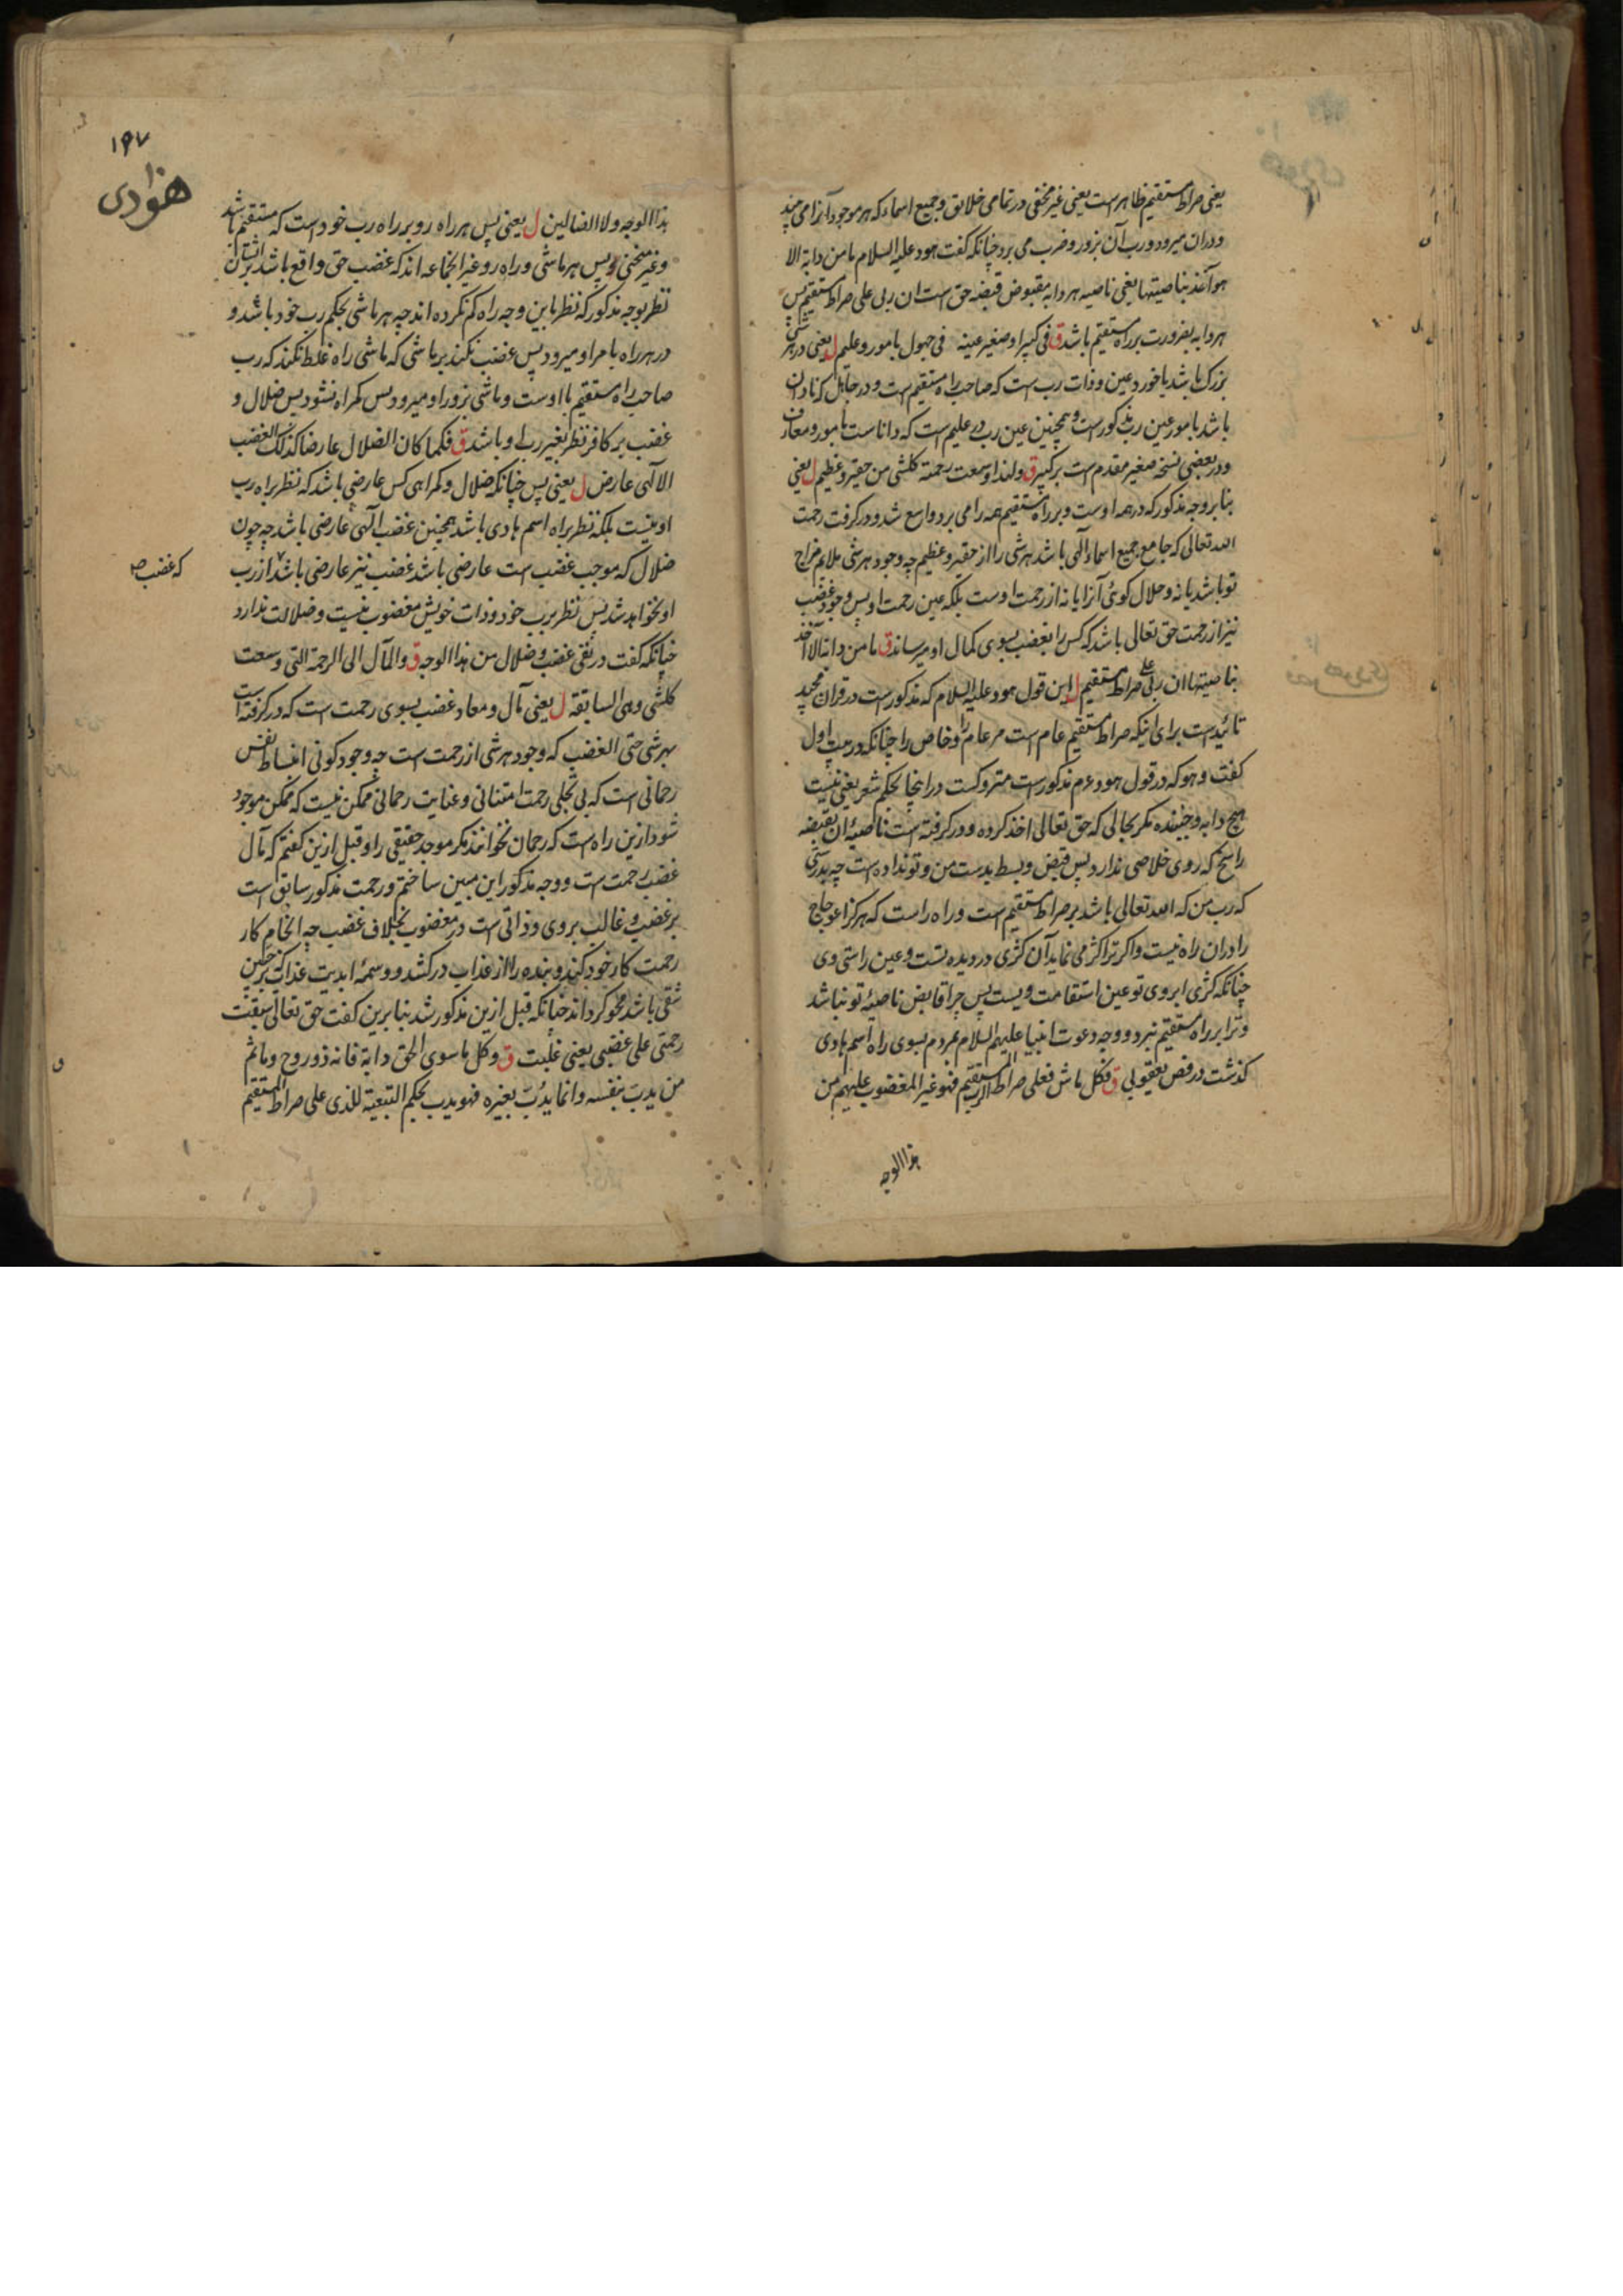 یعنی صراط مستقیم ظاهر است یعنی غیر مخفی در تمامی خلایق و جمیع اسماء که هر موجود آنرا می
و دران میرود و رب آن بزور و ضرب می برد چنانکه گفت هود علیه السلام ما من دابة الا
هو آخذ بناصیتها یعنی ناصیه هر دابه مقبوض قبضه حق است ان ربی علی صراط مستقیم پس
هر دابه بضرورت بر راه مستقیم باشد ق فی کبیر او صغیر عینه فی جهول بامور و علیم ل یعنی در هر شی
بزرک باشد یا خورد عین و ذات رب است که صاحب راه مستقیم است و در جاهل که نادان
باشد بامور عین رب مذکور است و همچنین عین رب در علیم است که داناست بامور و معارف
و در بعضی نسخه صغیر مقدم است بر کبیر ق ولهذا وسعت رحمته کلشی من حقیر و عظیم ل یعنی
بنا بر وجه مذکور که در همه اوست و بر راه مستقیم همه را می برد واسع شد و در گرفت رحمت
الله تعالی که جامع جمیع اسماء الهی باشد هر شی را از حقیر و عظیم چه وجود هر شی ملایم مزاج
تو باشد یا نه و حلال گوئی آنرا یا نه از رحمت اوست بلکه عین رحمت او پس وجود غضب
نیز از رحمت حق تعالی باشد که کس را بغضب بسوی کمال او میرساند ق ما من دابة الا آخذ
بناصیتها ان ربی علی صراط مستقیم ل این قول هود علیه السلام که مذکور است در قران مجید
تائید است برای اینکه صراط مستقیم عام است مر عام را و خاص را چنانکه در بیت اول
گفت و هو که در قول هود ءم مذکور است متروکست در اینجا بحکم شعر یعنی نیست
هیچ دابه و جنبنده مگر بحالی که حق تعالی اخذ کرده و در گرفته است ناصیهٔ آن بقبضه
راسخ که روی خلاصی ندارد پس قبض و بسط بدست من و تو نداده است چه بدرستی
که رب من که الله تعالی باشد بر صراط مستقیم است و راه راست که هرگز اعوجاج
را دران راه نیست و اگر ترا کژ می نماید آن کژی در دیده تست و عین راستی وی
چنانکه کژی ابروی تو عین استقامت ویست پس چرا قابض ناصیهٔ تو نباشد
و ترا بر راه مستقیم نبرد و وجه دعوت انبیا علیهم السلام مردم بسوی راه اسم هادی
گذشت در فص یعقوبی ق فکل ماش فعلی صراط الرب المستقیم فهو غیر المغضوب علیهم من
هذا الوجه
۱۹۷
هودی
هذا الوجه ولا الضالین ل یعنی پس هر راه رو بر راه رب خود است که مستقیم باشد
و غیر منحنی و پس هر ماشی و راه رو غیر انجماعه اند که غضب حق واقع باشد بر ایشان
نظر بوجه مذکور که نظر باین وجه راه گم نکرده اند چه هر ماشی بحکم رب خود باشد و
در هر راه بامر او میرود پس غضب نکند بر ماشی که ماشی راه غلط نکند که رب
صاحب راه مستقیم با اوست و ماشی بزور او میرود پس گمراه نشود پس ضلال و
غضب بر کافر نظر بغیر رب او باشد ق فکما کان الضلال عارضا کذلک الغضب
الالهی عارض ل یعنی پس چنانکه ضلال و گمراهی کس عارضی باشد که نظر براه رب
او نیست بلکه نظر براه اسم هادی باشد همچنین غضب الهی عارضی باشد چه چون
ضلال که موجب غضب است عارضی باشد غضب نیز عارضی باشد از رب
که غضب صح
او نخواهد شد پس نظر برب خود و ذات خویش مغضوب نیست و ضلالت ندارد
چنانکه گفت در نفی غضب و ضلال من هذا الوجه ق والمآل الی الرحمة التی وسعت
کلشی وهی السابقة ل یعنی مآل و معاد غضب بسوی رحمت است که در گرفته است
بهر شی حتی الغضب که وجود هر شی از رحمت است چه وجود کونی انبساط نفس
رحمانی است که بی تجلی رحمت امتنانی و عنایت رحمانی ممکن نیست که ممکن موجود
شود ازین راه است که رحمان نخوانند مگر موجد حقیقی را و قبل ازین گفتم که مآل
غضب رحمت است و وجه مذکور این مبین ساختم و رحمت مذکور سابق است
بر غضب و غالب بر وی و ذاتی است در مغضوب بخلاف غضب چه انجام کار
رحمت کار خود کند و بنده را از عذاب در کشد و وسمهٔ ابدیت عذاب که بر جبین
شقی باشد محو گرداند چنانکه قبل ازین مذکور شد بنابرین گفت حق تعالی سبقت
رحمتی علی غضبی یعنی غلبت ق وکل ما سوی الحق دابة فانه ذو روح وما ثم
من یدبّ بنفسه وانما یدُبّ بغیره فهو یدب بحکم التبعیة للذی علی صراط المستقیم